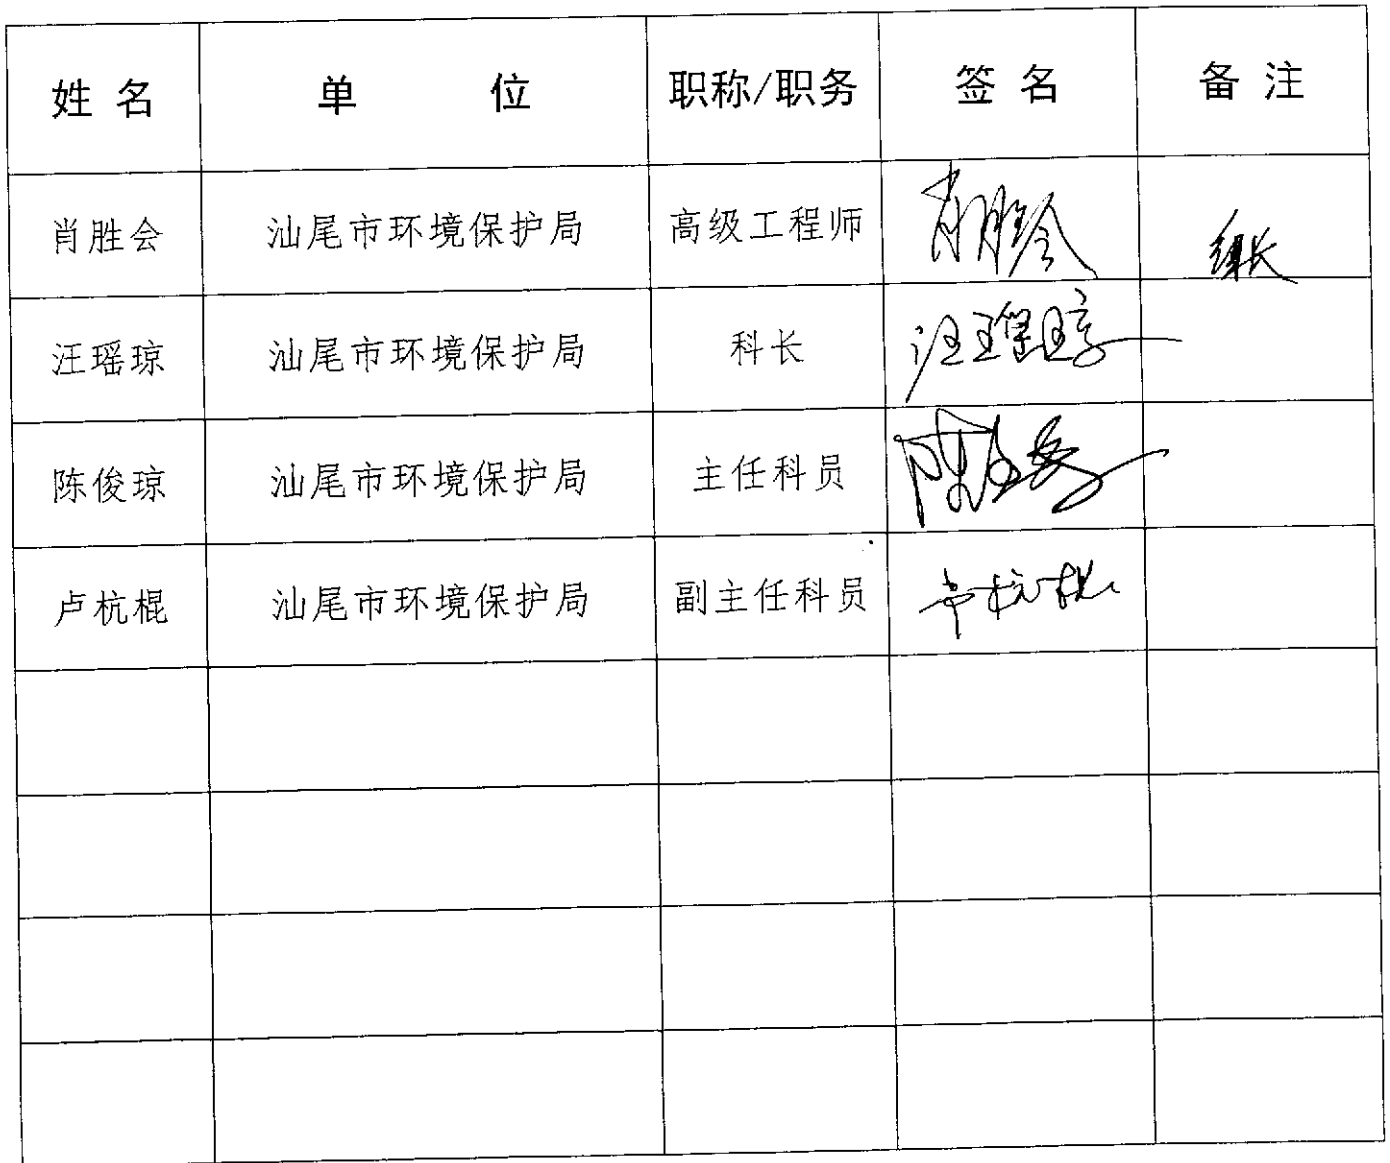 姓名 单位 职称/职务 签名 备注
肖胜会 汕尾市环境保护局 高级工程师 肖胜会 组长
汪瑶琼 汕尾市环境保护局 科长 汪瑶琼
陈俊琼 汕尾市环境保护局 主任科员
卢杭棍 汕尾市环境保护局 副主任科员 卢杭棍